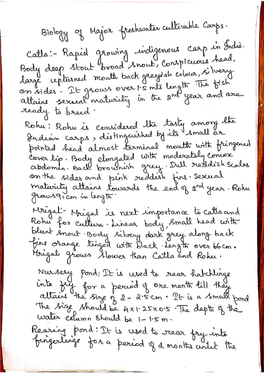 Biology of Major freshwater cultivable Carps.
Catla:- Rapid growing indigenous carp in India.
Body deep stout broad snout, conspicuous head,
large upturned mouth back greyish colour, silvery
on sides. It grows over 1.5 mts length The fish
attains sexual maturity in the 2nd year and are
ready to breed.
Rohu: Rohu is considered the tasty among the
Indian carps, distinguished by its small or
pointed head almost terminal mouth with fringened
lower lip. Body elongated with moderately convex
abdomen. back brownish grey. Dull reddish Scales
on the sides and pink reddish fins. Sexual
maturity attains towards the end of 2nd year. Rohu
grows 91 cm in length.
Mrigal- Mrigal is next importance to Catla and
Rohu for culture. Linear body small head with
blunt snout. Body silvery dark grey along back
fins orange tinged with black. Length over 66 cm.
Mrigal grows slower than Catla and Rohu.
Nursery Pond: It is used to rear hatchlings
into fry for a period of one month till they
attains the size of 2-2.5 cm. It is a small pond
The size should be 4x1.25x0.5 The depts of the
water column should be 1-1.5 m.
Rearing pond: It is used to rear fry into
fingerlings for a period of 2 months until the